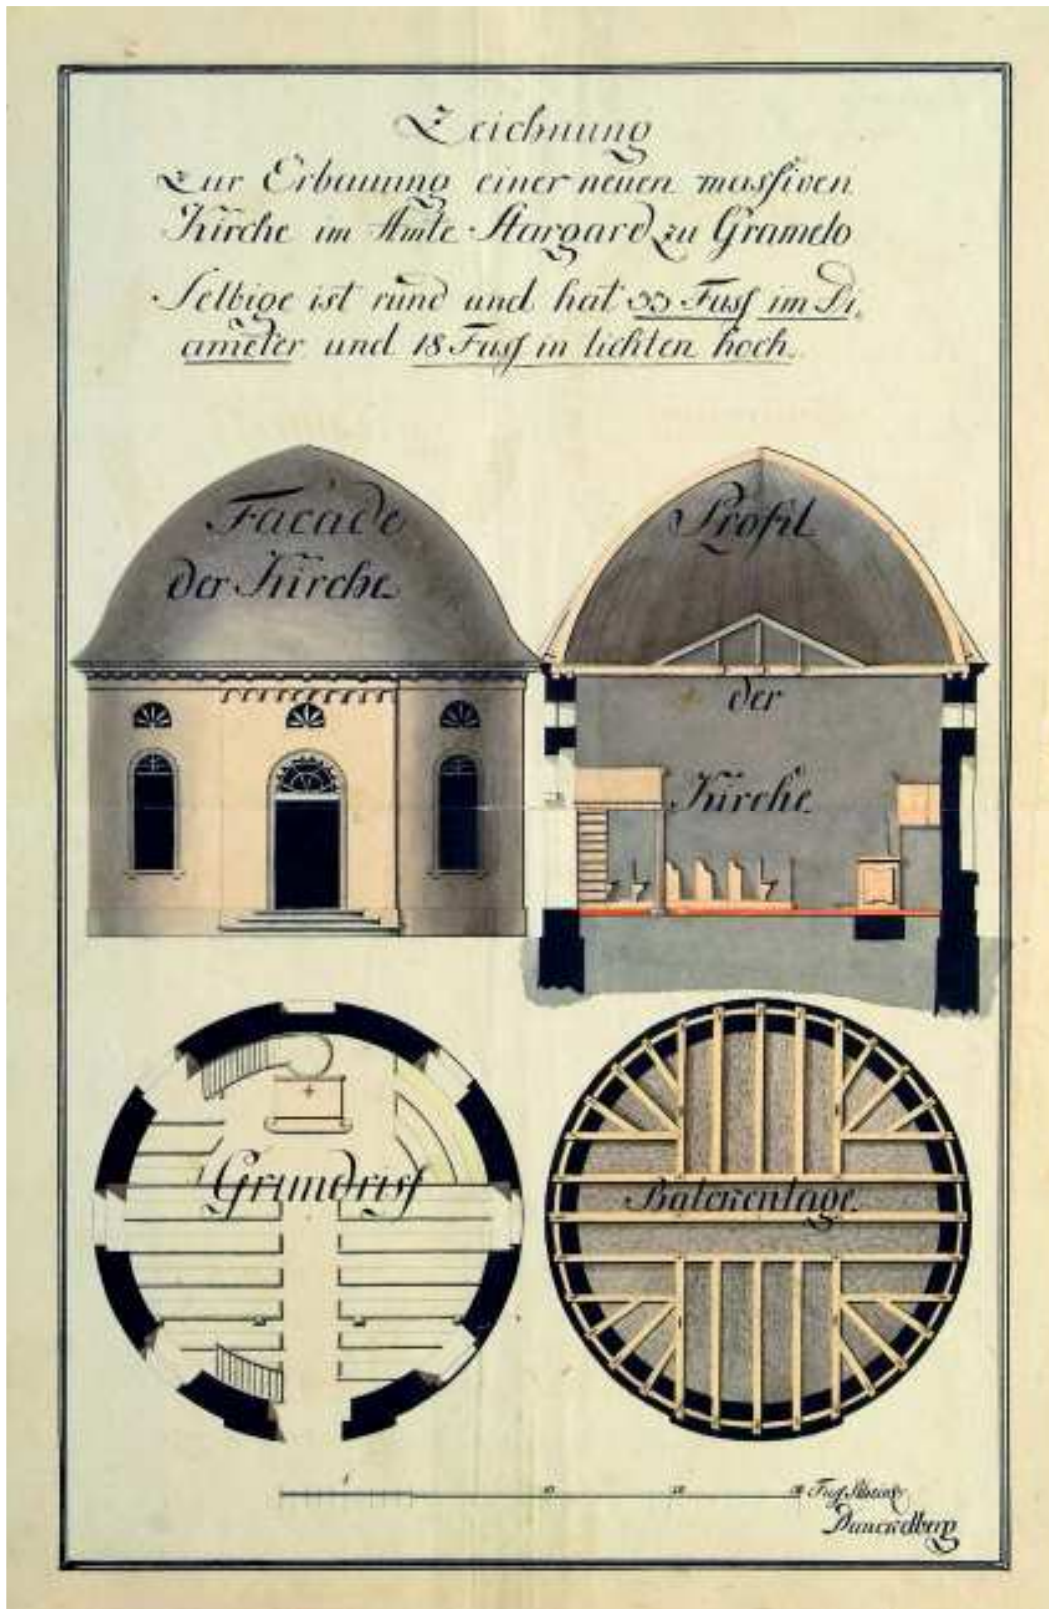 Zeichnung
zur Erbauung einer neuen massiven
Kirche im Amte Stargard zu Gramelo
Selbige ist rund und hat 33 Fuss im Di,
ameter und 18 Fuss in lichten hoch.
Facade
der Kirche
Profil
der
Kirche
Grundriss
Balckenlage
10
Dunckelberg